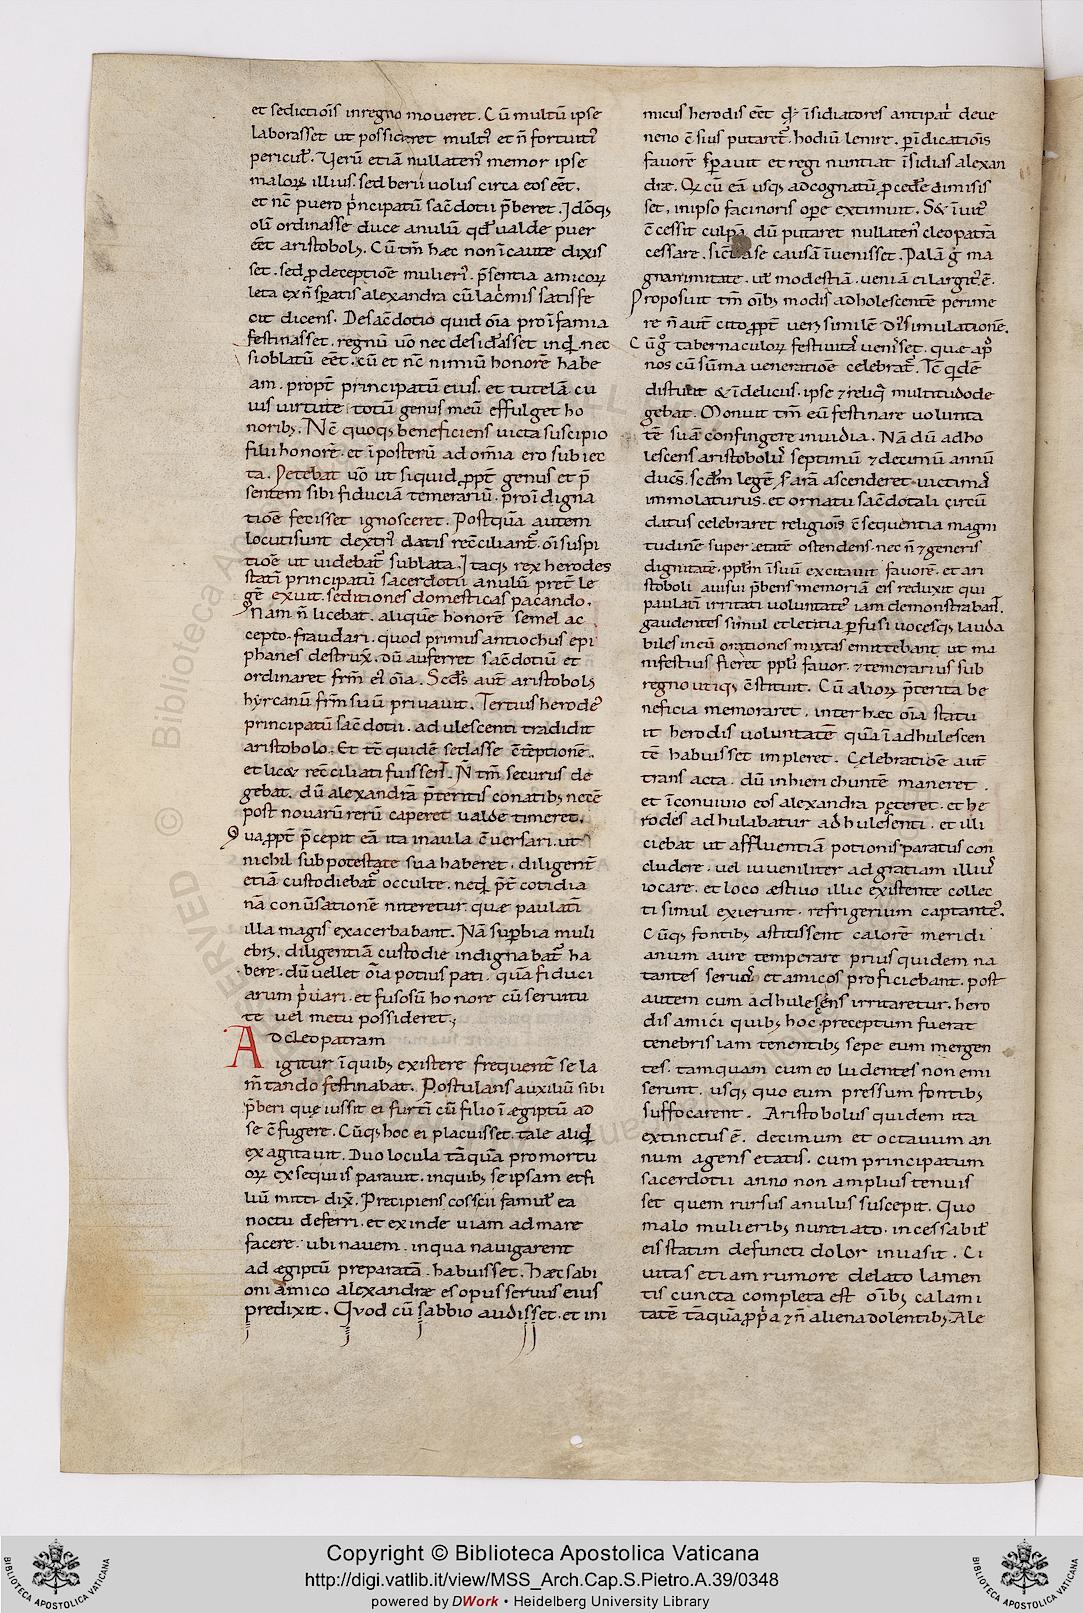 et sedictiōis inregno moveret. Cū multū ipse
laborasset ut possideret multis et ñ fortuitis
periculis. Verū etiā nullaten' memor ipse
maloꝝ illius. sed
et nc̄ puero p̄ncipatū sac̄dotii p̄beret. Idōq;
oli ordinasse duce anulū qđ valde puer
eēt aristobolꝫ. Cū tm̄ hæc non īcaute dixis
set. sed ꝓ deceptiōe mulieris. p̄sentia amicoꝝ
leta ex ñ sp̄atis alexandra cū lac̄mis satisfe
cit dicens. De sac̄dotio quid oīa pro īfamia
festinasset. regnū vo nec desid'asset inqđ. nec
si oblatū eēt. cū et nc̄ nimiū honorē habe
am. propt̄ principatū eius. et tutelā. cu
ius virtute totū genus meū effulget ho
noribꝫ. Nc̄ quoqꝫ beneficiens victa suscipio
filii honorē. et ī posterū ad omīa ero subiec
ta. Petebat vo ut siquid ꝓpt̄ genus et p̄
sentem sibi fiduciā temerariū. pro īdigna
tiōe fecisset ignosceret. Postquā autem
locuti sunt dextris datis rec̄ciliant̄. oī suspi
tiōe ut videbat̄ sublata. Itaqꝫ rex herodes
statī principatū sacerdotii anulū pret̄ le
gē exuit. seditiones domesticas pacando.
Nam ñ licebat. aliquē honorē semel ac
cepto. fraudari. quod primus antiochus epi
phanes destrux̄. dū auferret sac̄dotiū et
ordinaret frm̄ ei oīa. Scđs aut̄ aristobolꝫ
hyrcanū frm̄ suū privavit. Tertius herodes
principatū sac̄dotii. adulescenti tradidit
aristobolo. Et tc̄ quidē sedasse c̄tēptionē.
et licet rec̄ciliati fuissent. Ñ tm̄ securus de
gebat. dū alexandrā p̄teritis conatibꝫ ne tc̄
post novarū rerū caperet valde timeret.
Qua ꝓpt̄ p̄cepit eā ita in aula c̄versari. ut
nichil sub potestate sua haberet. diligent̄
etiā custodiebat̄ occulte. neqđ p̄t̄ cotidia
nā con̄sationē niteretur. quæ paulatī
illa magis exacerbabant. Nā sup̄bia muli
ebris. diligentiā custodie indignabat̄ ha
bere. dū vellet oīa potius pati. quā fiduci
arum p̄vari. et fusosū honore cū servitu
te vel metu possideret.
Ad cleopatram
igitur ī quibꝫ existere frequent̄ se la
m̄tando festinabat. Postulans auxiliū sibi
p̄beri que iussit ei furtī cū filio ī ægiptū ad
se c̄fugere. Cūqꝫ hoc ei placuisset. tale aliqđ
exagitavit. Duo locula tāquā pro mortu
oꝝ exsequiis paravit. in quibꝫ se ipsam et fi
liū mitti dix̄. Precipiens cosscii famulis ea
noctu deferri. et exinde viam ad mare
facere. ubi navem. in qua navigarent
ad ægiptū preparatā. habuisset. Hæc sabi
oni amico alexandræ esopus servus eius
predixit. Quod cū sabbio audisset. et ini
micus herodis eēt qđ īsidiatores antipat̄ de ve
neno c̄sius putaret̄. hodiū lenire. p īdicatiōis
favorē sp̄avit et regi nuntiat īsidias alexan
dræ. Q cū eā usqꝫ ad cognatū ꝓcedē dimisis
set. in ipso facinoris ope extimuit. S& ī
c̄cessit culpā dū putaret nullaten' cleopatrā
cessare. sic̄ ase causā īvenisset. Palā g̃ ma
gnanimitate. ut modestiā. veniā ei largit' ē.
Proposuit tm̄ oībꝫ modis adholescentē perime
re ñ aut̄ cito ꝓpt̄ verꝫ similē dissimulationē.
Cū g̃ tabernaculoꝝ festivitas venisset. quæ ap̄
nos cū sūma veneratiōe celebrat̄. Tc̄ qidē
distulit & ī delicus. ipse ⁊ reliq multitudo de
gebat. Monuit tm̄ eū festinare volunta
tē suā confingere invidia. Nā dū adho
lescens aristobolus septimū ⁊ decimū annū
ducēs. scđm legē s̄ arā ascenderet. victimas
immolaturus. et ornatu sac̄dotali circū
datus celebraret religiōis c̄sequentia magni
tudinē super ætatē ostendens. nec ñ ⁊ generis
dignitatē. pplm̄ ī suū excitavit favorē. et ari
stoboli avi sui p̄bens memoriā eis reduxit qui
paulatī irritati voluntates iam demonstrabant.
gaudentes simul et letitia pfusi vocesqꝫ lauda
biles in eū orationes mixtas emittebant ut ma
nifestius fieret ppli favor. ⁊ temerarius sub
regno utiqꝫ c̄stituit. Cū alioꝝ p̄terita be
neficia memoraret. inter hæc oīa statu
it herodis voluntatē quā ī adhulescen
tē habuisset impleret. Celebratiōe aut̄
transacta. dū in hierichuntē maneret.
et ī convivio eos alexandra peteret. et he
rodes adhulabatur adhulesenti. et illi
ciebat ut affluentiā potionis paratus con
cludere. vel iuveniliter ad gratiam illius
iocare. et loco æstivo illic existente collec
ti simul exierunt. refrigerium captantes.
Cūqꝫ fontibꝫ astitissent calorē meridi
anum aure temperare prius quidem na
tantes servos et amicos proficiebant. post
autem cum adhulesens irritaretur. hero
dis amici quibꝫ hoc preceptum fuerat
tenebris iam tenentibꝫ sepe eum mergen
tes. tamquam cum eo ludentes non emi
serunt. usqꝫ quo eum pressum fontibꝫ
suffocarent. Aristobolus quidem ita
extinctus ē. decimum et octavum an
num agens etatis. cum principatum
sacerdotii anno non amplius tenuis
set quem rursus anulus suscepit. Quo
malo mulieribꝫ nuntiato. incessabilis
eis statim defuncti dolor invasit. Ci
vitas etiam rumore delato lamen
tis cuncta completa est oībꝫ calami
tatē tāquā ꝓp̄a ⁊ ñ aliena dolentibꝫ. Ale
Copyright © Biblioteca Apostolica Vaticana
http://digi.vatlib.it/view/MSS_Arch.Cap.S.Pietro.A.39/0348
powered by DWork • Heidelberg University Library